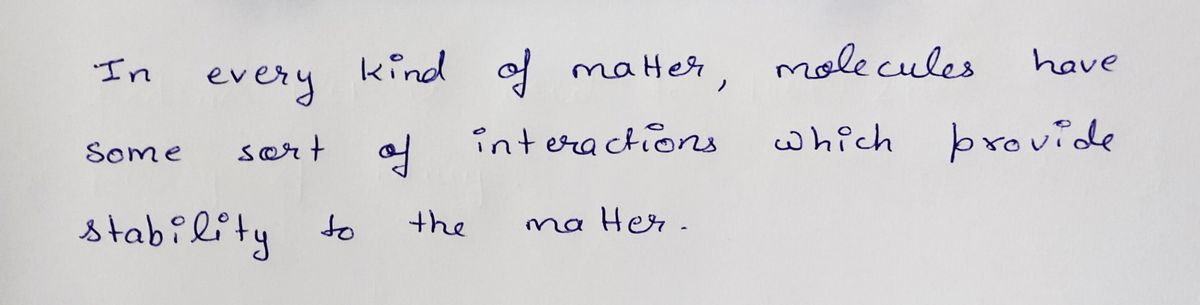 In every kind of matter, molecules have
some sort of interactions which provide
stability to the matter.